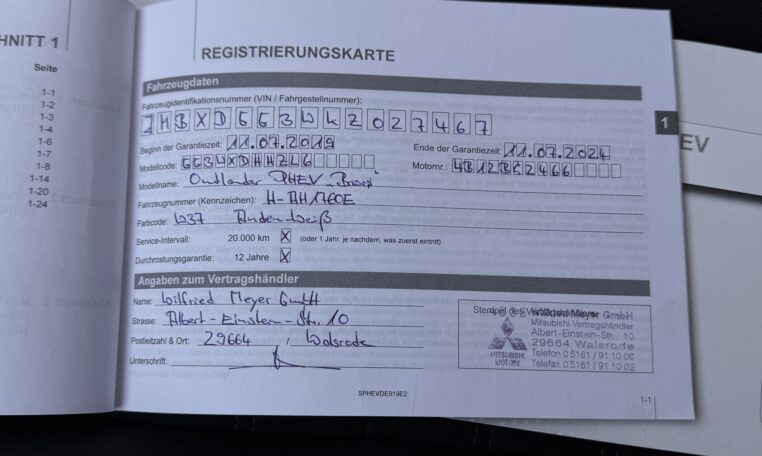 HNITT 1
Seite
1-1
1-2
1-3
1-4
1-6
1-7
1-8
1-14
1-20
1-24
REGISTRIERUNGSKARTE
Fahrzeugdaten
Fahrzeugidentifikationsnummer (VIN / Fahrgestellnummer):
JMBXDGG3WKZ027467
Beginn der Garantiezeit: 11.07.2019 Ende der Garantiezeit: 11.07.2024
Modellcode: GG3WXDHHZL6 Motornr.: 4B12BG2466
Modellname: Outlander PHEV
Fahrzeugnummer (Kennzeichen):
Farbcode: W37
Service-Intervall: 20.000 km X (oder 1 Jahr, je nachdem, was zuerst eintritt)
Durchrostungsgarantie: 12 Jahre X
Angaben zum Vertragshändler
Name: Wilfried Meyer GmbH
Strasse: Albert-Einstein-Str. 10
Postleitzahl & Ort: 29664 / Walsrode
Unterschrift:
Stempel des Vertragshändlers Meyer GmbH
Mitsubishi-Vertragshändler
Albert-Einstein-Str. 10
29664 Walsrode
Telefon 0 51 61 / 91 10 00
Telefax 0 51 61 / 91 10 02
MITSUBISHI
MOTORS
SPHEVDE919E2
1-1
1
EV